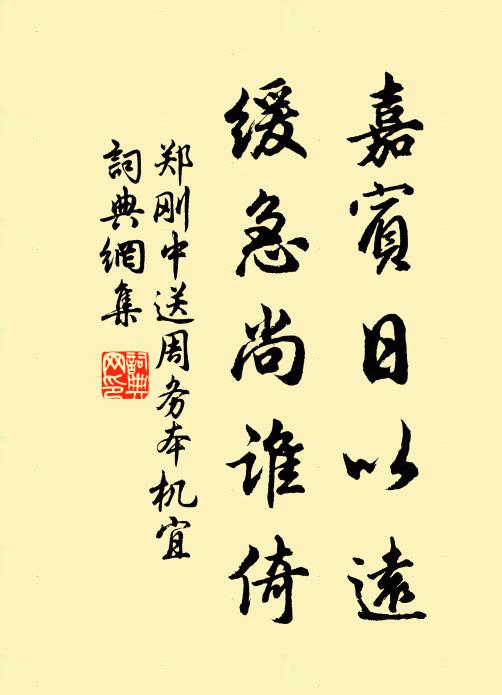 嘉賓日以遠
緩急尚誰倚
郑刚中送周务本机宜
詞典網集
詞典网印